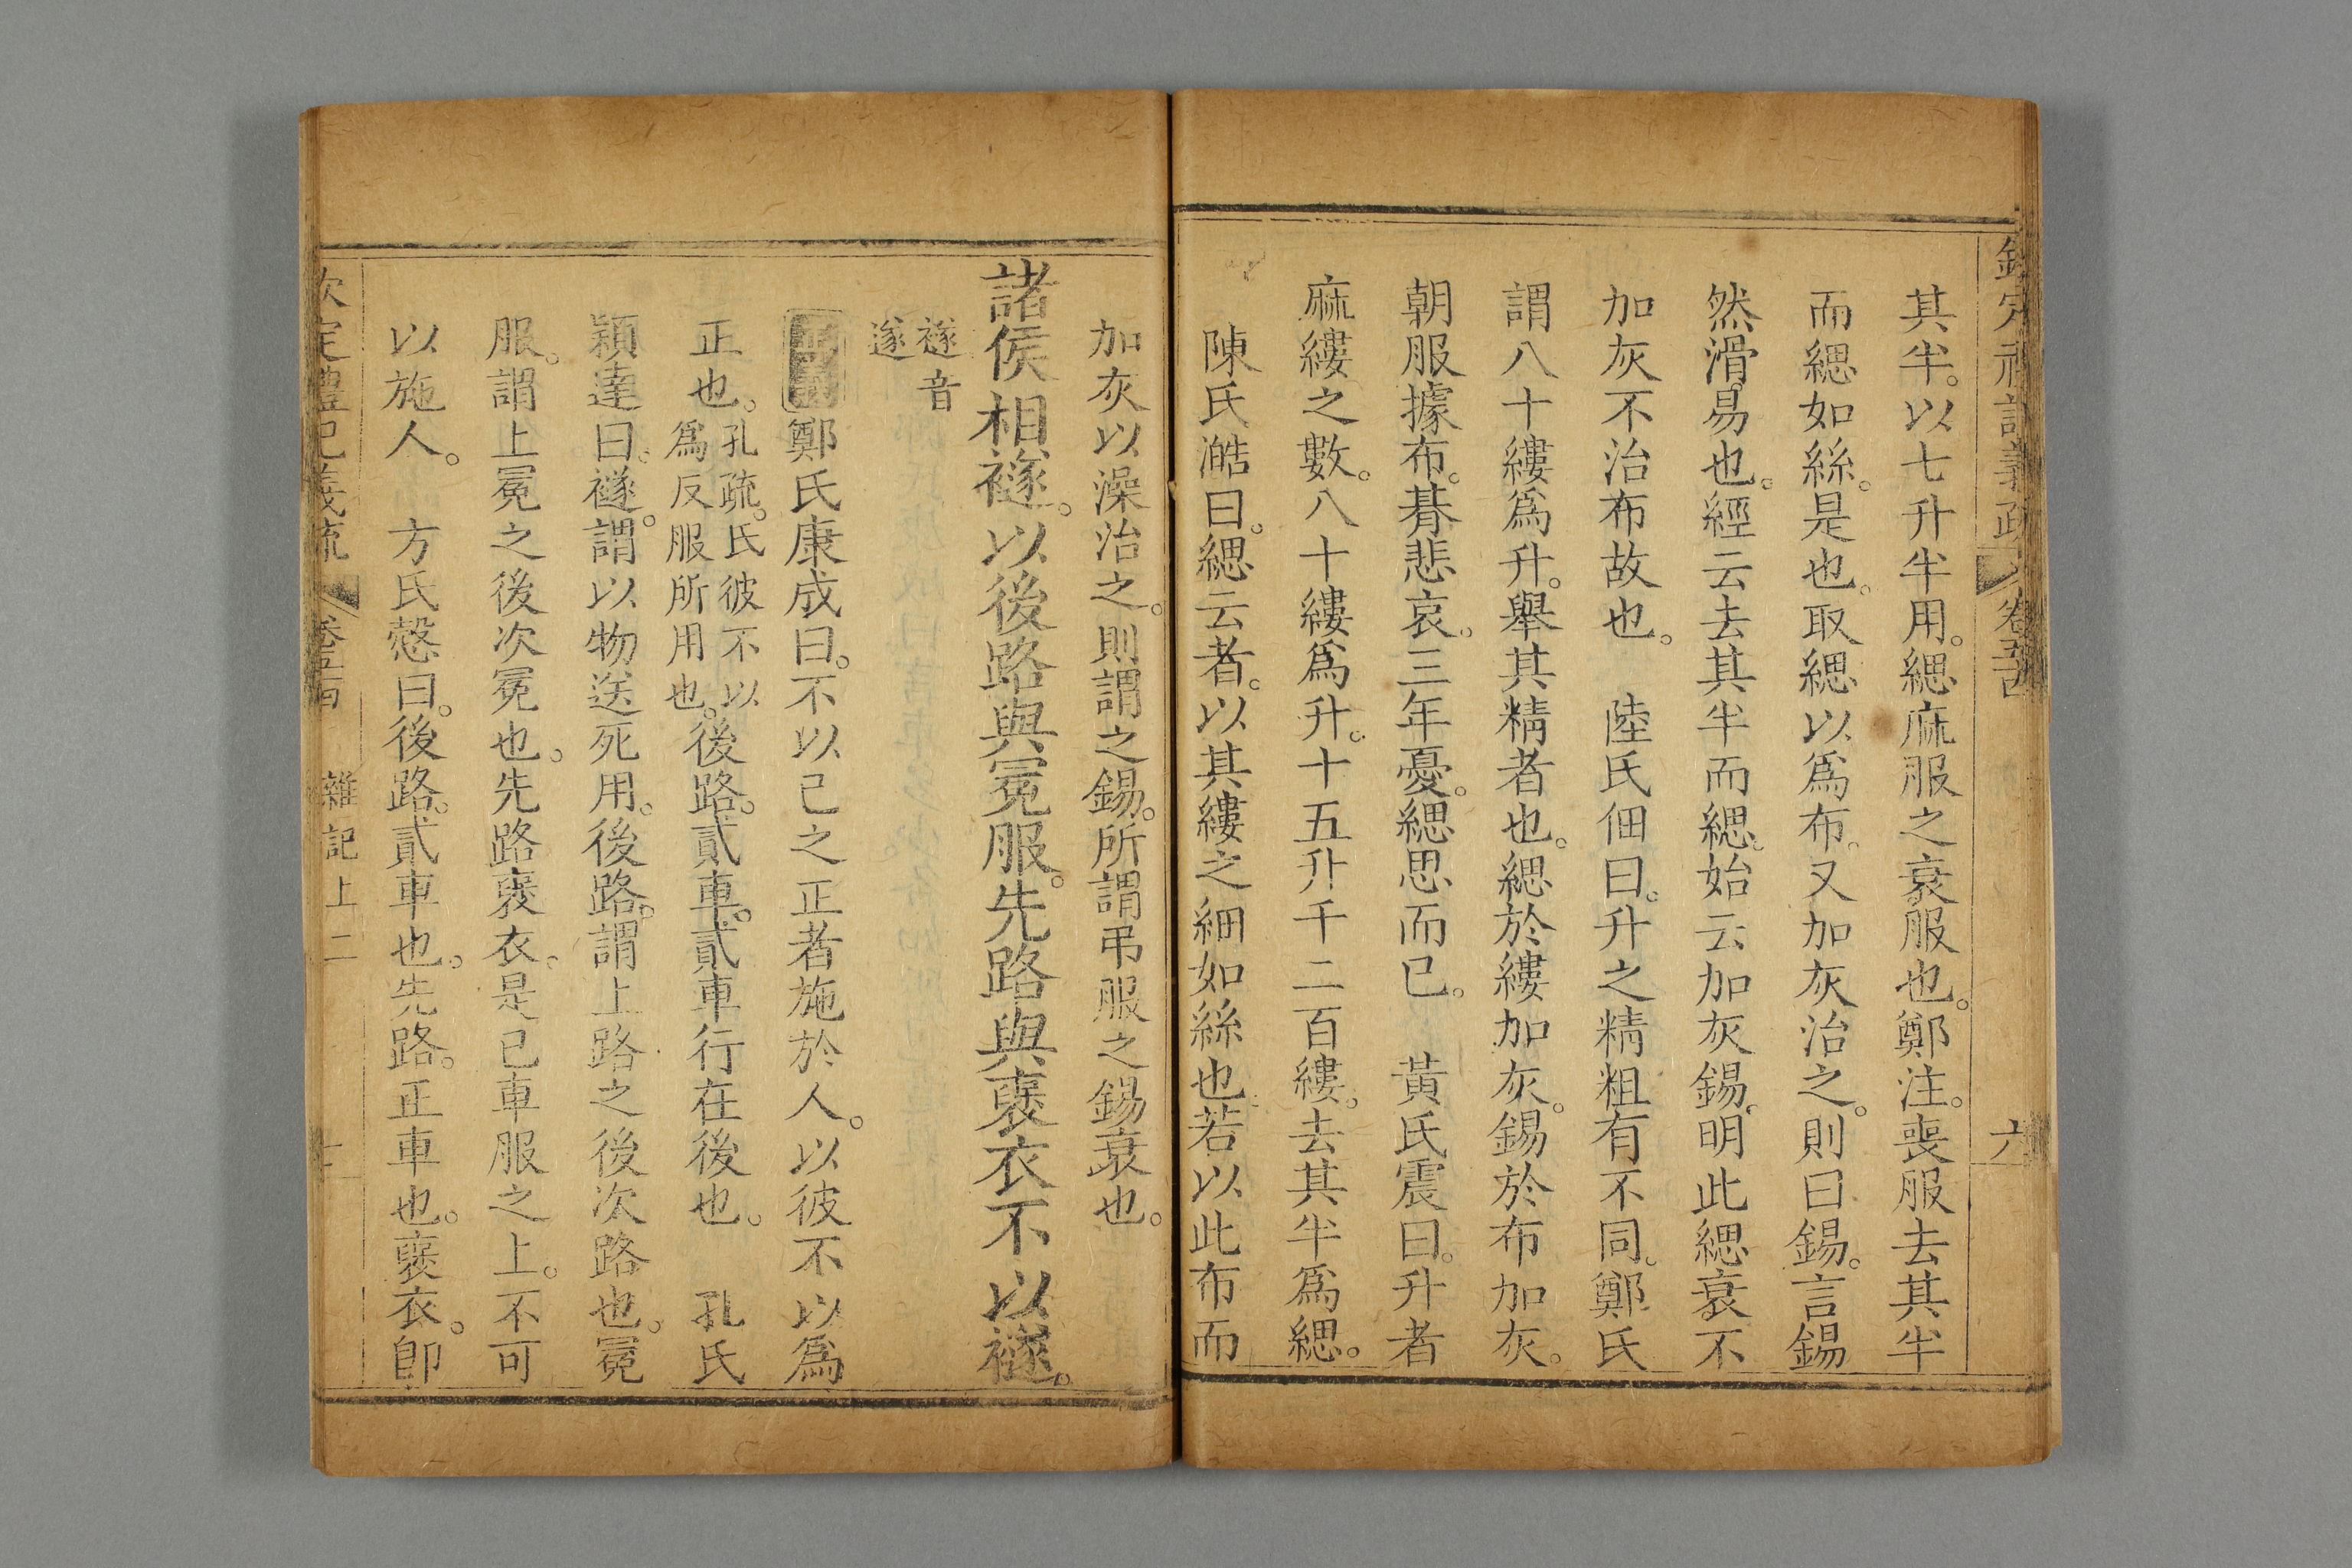 其半。以七升半用。緦麻服之衰服也。鄭注。喪服去其半
而緦如絲。是也。取緦以爲布。又加灰治之。則曰錫。言錫
然滑易也。經云去其半而緦。始云加灰錫。明此緦衰不
加灰不治布故也。　陸氏佃曰。升之精粗有不同。鄭氏
謂八十縷爲升。舉其精者也。緦於縷加灰。錫於布加灰。
朝服據布。朞悲哀。三年憂。緦思而已。　黃氏震曰。升者
麻縷之數。八十縷爲升。十五升千二百縷。去其半爲緦。
陳氏澔曰。緦云者。以其縷之細如絲也。若以此布而
加灰以澡治之。則謂之錫。所謂弔服之錫衰也。
諸侯相襚。以後路與冕服。先路與襃衣不以襚。
襚音
遂
鄭氏康成曰。不以己之正者施於人。以彼不以爲
正也。孔疏。氏彼不以爲反服所用也。後路。貳車。貳車行在後也。　孔氏
穎達曰。襚。謂以物送死用。後路。謂上路之後次路也。冕
服。謂上冕之後次冕也。先路襃衣。是已車服之上。不可
以施人。　方氏慤曰。後路。貳車也。先路。正車也。襃衣。卽
欽定禮記義疏　雜記上二